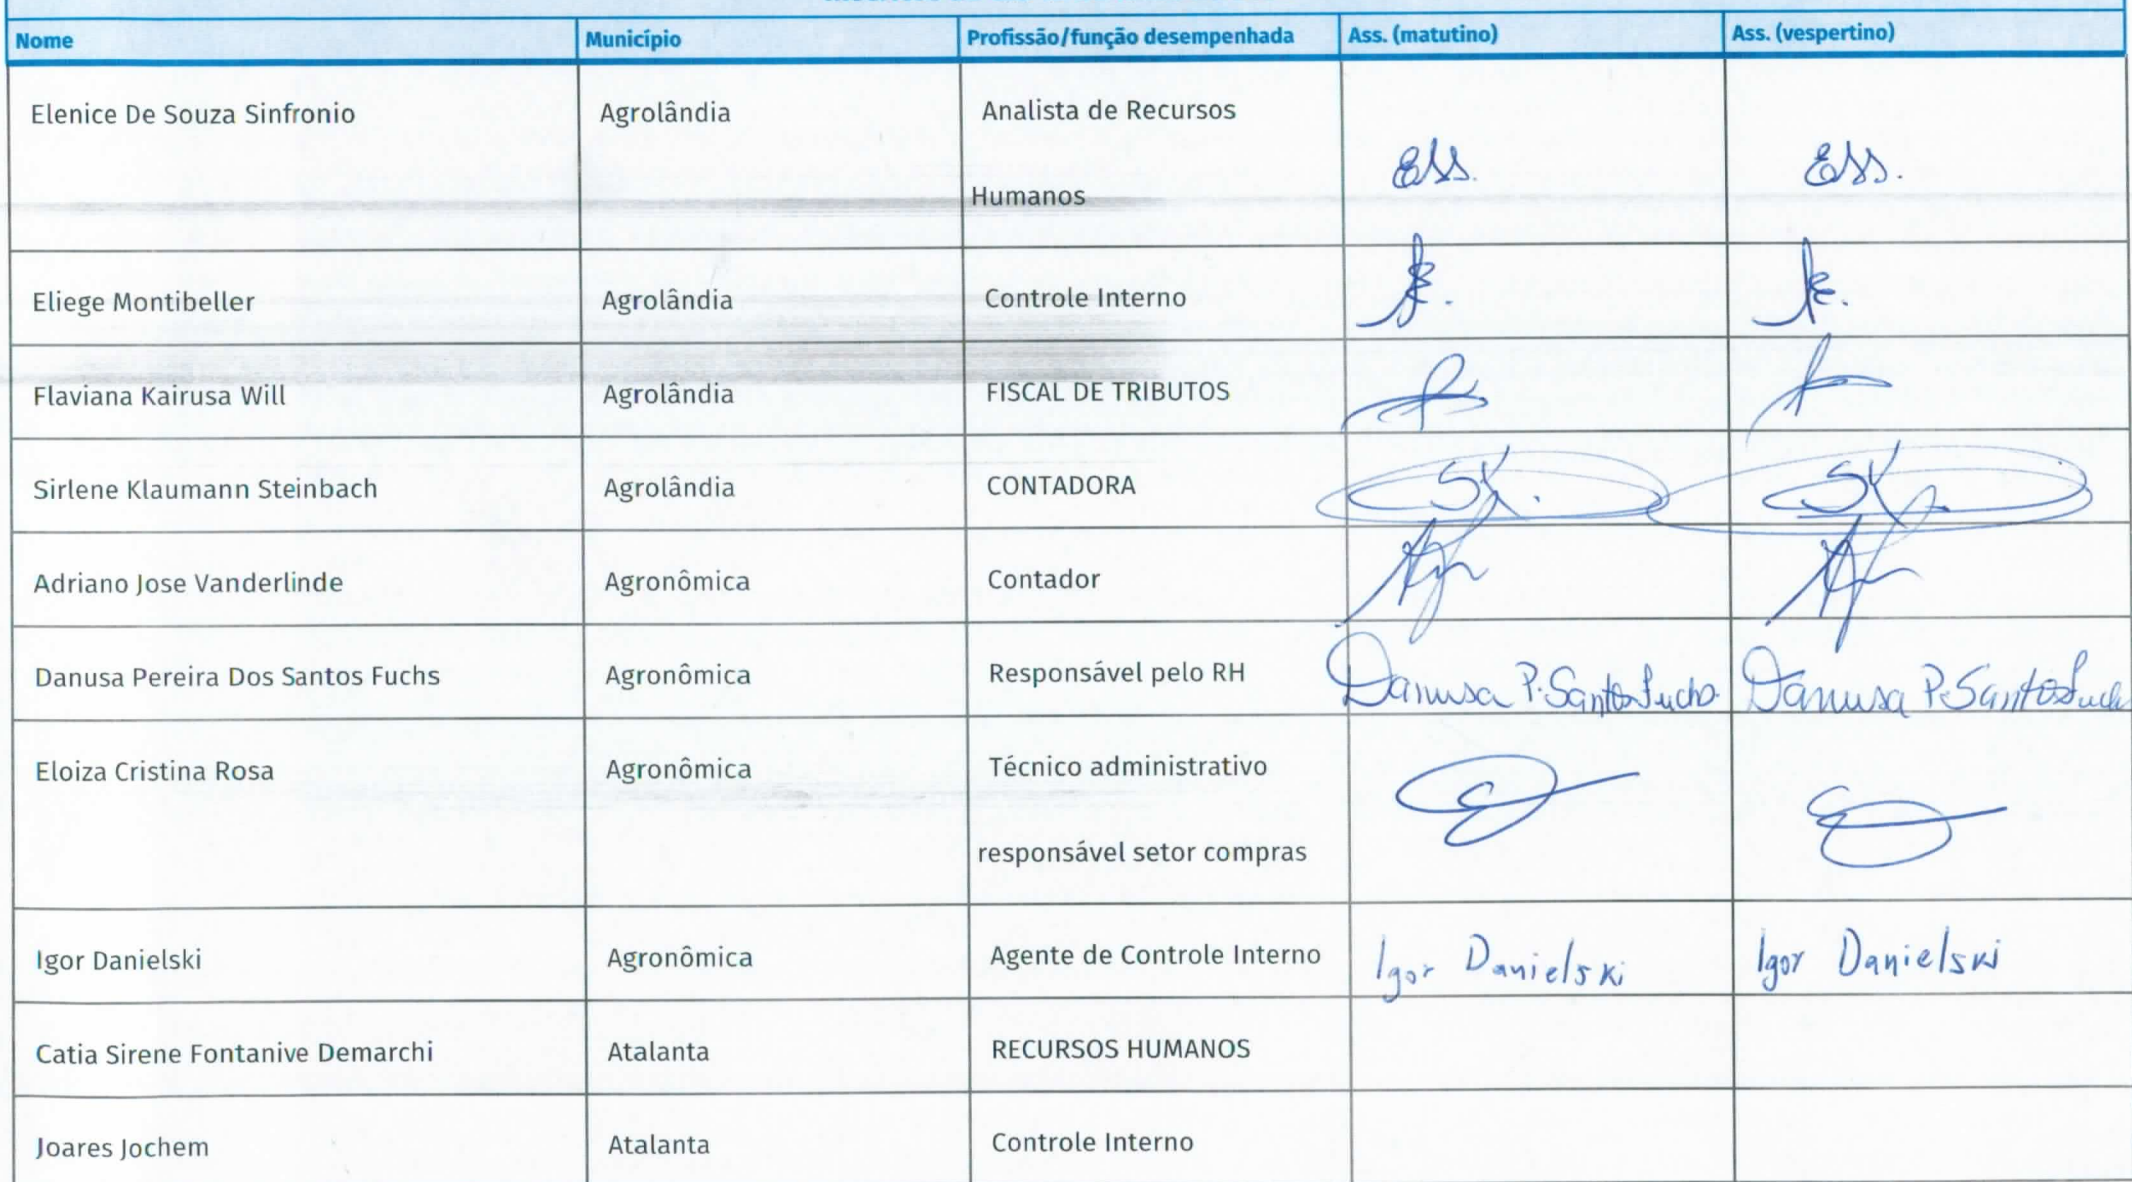 Nome Município Profissão/função desempenhada Ass. (matutino) Ass. (vespertino)
Elenice De Souza Sinfronio Agrolândia Analista de Recursos
Humanos ESS. ESS.
Eliege Montibeller Agrolândia Controle Interno
Flaviana Kairusa Will Agrolândia FISCAL DE TRIBUTOS
Sirlene Klaumann Steinbach Agrolândia CONTADORA SK. SK
Adriano Jose Vanderlinde Agronômica Contador
Danusa Pereira Dos Santos Fuchs Agronômica Responsável pelo RH Danusa P. Santos Fuchs Danusa P. Santos Fuchs
Eloiza Cristina Rosa Agronômica Técnico administrativo
responsável setor compras
Igor Danielski Agronômica Agente de Controle Interno Igor Danielski Igor Danielski
Catia Sirene Fontanive Demarchi Atalanta RECURSOS HUMANOS
Joares Jochem Atalanta Controle Interno